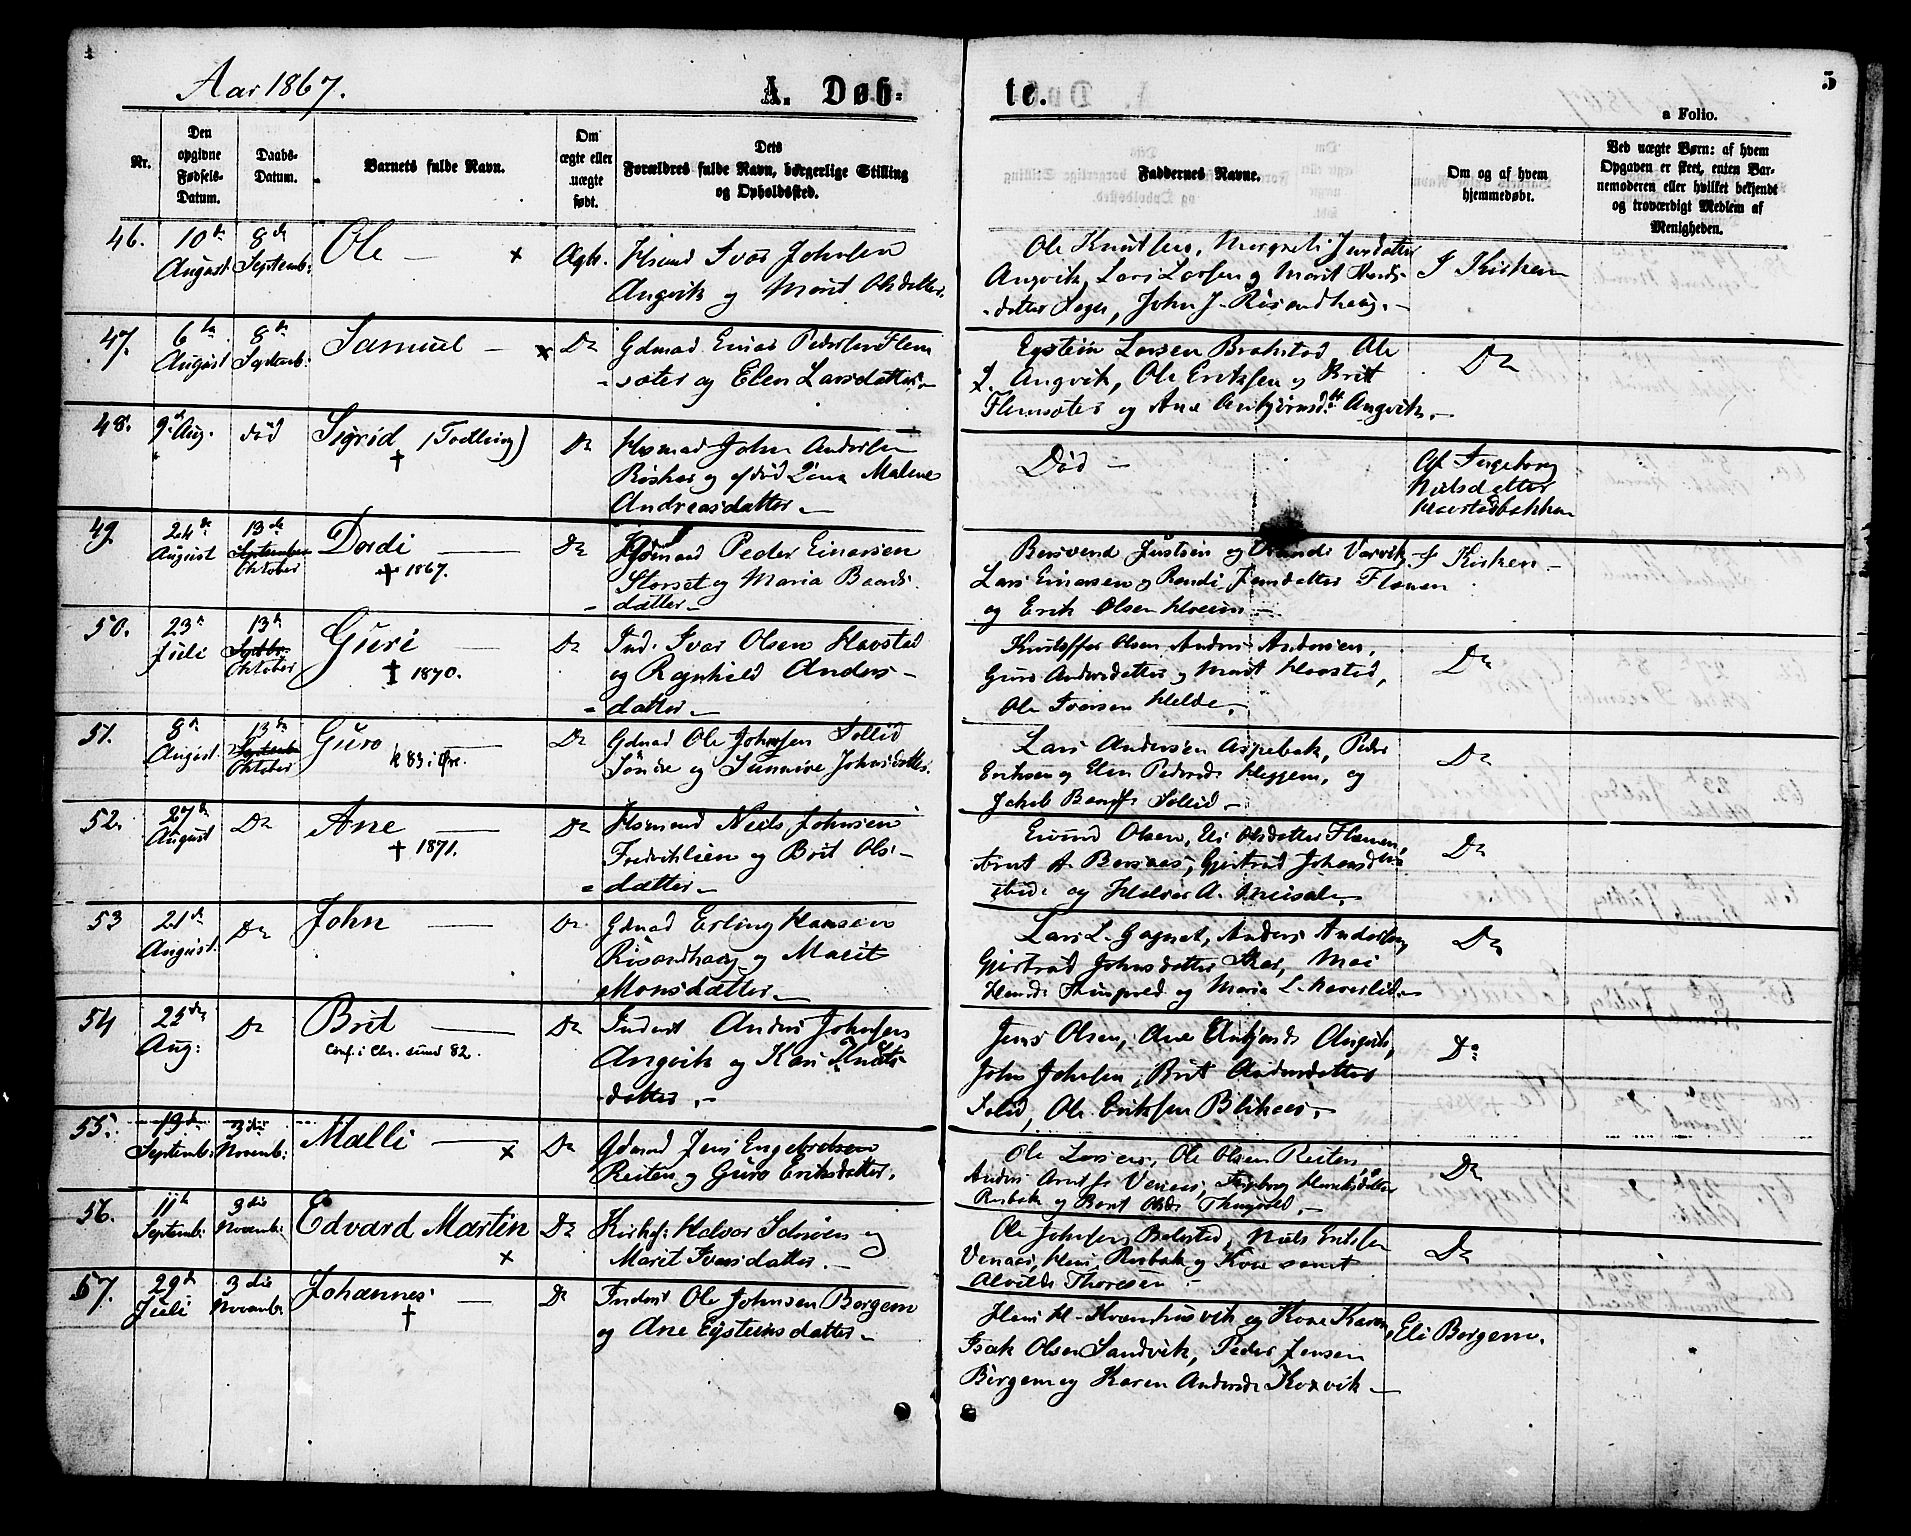 4
Aar 1867.
A. Døb-
te.
5
a Folio.
Nr.
Den opgivne Fødsels-Datum.
Daabs-Datum.
Barnets fulde Navn.
Om ægte eller uægte født.
Dets Forældres fulde Navn, borgerlige Stilling og Opholdssted.
Faddernes Navne.
Om og af hvem hjemmedøbt.
Ved uægte Børn: af hvem Opgaven er skeet, enten Barnemoderen eller hvilket bekjendt og troværdigt Medlem af Menigheden.
46.
10de August
8de Septemb:
Ole — ×
Ægte.
Husmd Ivar Johnsen
Angvik og Marit Olsdatter.
Ole Knutsen, Margreti Jensdatter
Angvik, Lars Larsen og Marit
datter, John J. Risandhaug. —
I Kirken
47.
6te August
8de Septemb:
Samuel — ×
Do
Gdmad Einar Pedersen Flem
sæter og Elen Larsdatter. —
Eystein Larsen Brakstad, Ole
Angvik, Ole Eriksen og Brit
Flemsæter og Ane Anbjørnsdtr Angvik. —
Do
48.
9de Aug.
død
Sigrid (Tvilling)
†
Do
Husmad John Andersen
Røskar og Malene
Andreasdatter. —
Død —
Af Ingeborg
Nielsdatter
Havstadbakken
49.
24de August
13de Septembr Oktober
Dordi —
† 1867.
Do
Peder Einarsen
Storset og Maria Baards-
datter —
Bersvend Justsen og Varvik,
Lars Einarsen og Randi Jensdatter Flemen
og Erik Olsen Hoem —
I Kirken —
50.
23de Juli
13de Septbr. Oktober
Guri —
† 1870.
Do
Ind. Ivar Olsen Havstad
og Ragnhild Anders —
datter. —
Kristoffer Olsen, Anders Andersen,
Guro Andersdatter og Marit Havstad,
Ole Iversen Helde. —
Do
51.
8de August
13de Septemb Oktober
Guro —
k 83 i Øre.
Do
Gdmad Ole Johnsen Sollid
Søndre og Sunnive Johnsdatter.
Lars Andersen Aspebak, Peder
Eriksen og Elen Pedersd. Heggem, og
Jakob Bengts. Sollid —
Do
52.
27de August
Do
Ane —
† 1871.
Do
Husmand Niels Johnsen
Fredriklien og Brit Ols-
datter —
Eivind Olsen, Eli Olsdatter Flemen,
Arnt A. Bersaas, Gjertrud Johansd
og Halvor A. Meisal. —
Do
53
21de August.
Do
John —
Do
Gdmad Erling Hansen
Risandhaug og Marit
Monsdatter. —
Lars L. Gagnet, Anders Andersen,
Gjertrud Johnsdatter Skar, Mai
Hansd. Thingvold og Maria L. Haverlid. —
Do
54
22de Aug:
Do
Brit —
Conf. i Chr.sund 82.
Do
Inderst Anders Johnsen
Angvik og Kari Knuts-
datter. —
Jens Olsen, Ane Anbjørnsd. Angvik,
John Johnsen, Brit Andersdatter
Solid, Ole Eriksen Blikaas. —
Do
55.
19de Septemb:
3die Novemb:
Malli — ×
Do
Gdmad Jens Engebretsen
Reiten og Guro Eriksdatter.
Ole Larsen, Ole Olsen Reiten,
Anders Arntss. Venaas, Ingeborg Henriksdatter
Rusbak og Berit Olsd. Thingvold. —
Do
56.
11te Septemb:
3die Novemb:
Edvard Martin
×
Do
Kirks: Halvor og
Marit Ivarsdatter. —
Ole Johnsen Bolstad, Niels Eriksen
Venaas, Hans Rusbak og Kone samt
Alvilde Thoresen —
Do
57.
29de Juli
3die Novemb:
Johannes —
†
Do
Inderst Ole Johnsen Bergem
og Ane Eysteinsdatter —
Hans H. Kvanhusvik og Kone Karen,
Isak Olsen Sandvik, Peder Jensen
Bergem og Karen Andersd. Koxvik —
Eli Bergem.